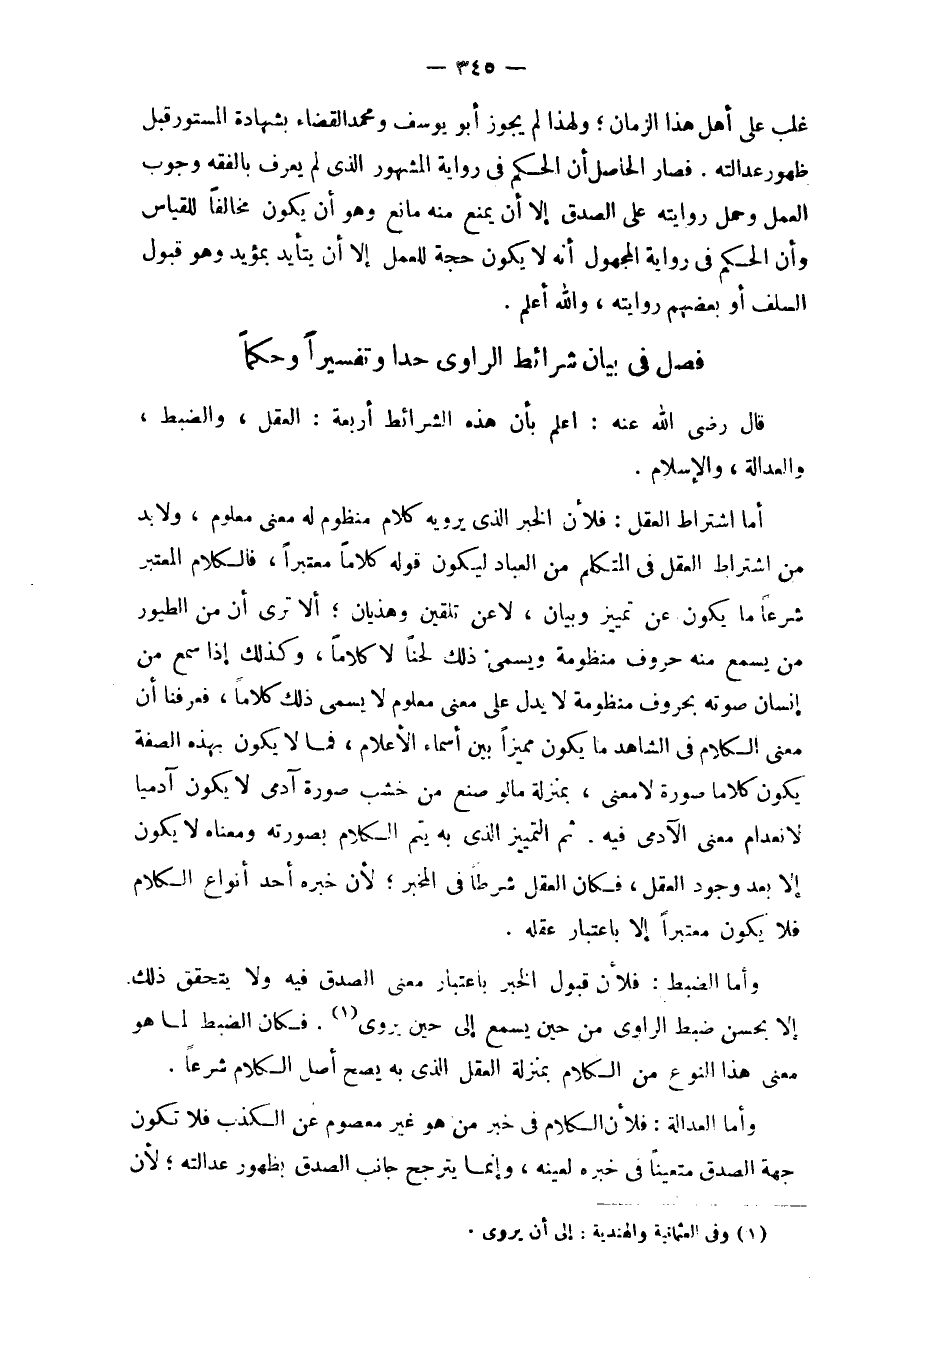 — ٣٤٥ —
غلب على أهل هذا الزمان ؛ ولهذا لم يجوز أبو يوسف ومحمد القضاء بشهادة المستور قبل
ظهور عدالته . فصار الحاصل أن الحكم فى رواية المشهور الذى لم يعرف بالفقه وجوب
العمل وحمل روايته على الصدق إلا أن يمنع منه مانع وهو أن يكون مخالفاً للقياس
وأن الحكم فى رواية المجهول أنه لا يكون حجة للعمل إلا أن يتأيد بمؤيد وهو قبول
السلف أو بعضهم روايته ، والله أعلم .
فصل فى بيان شرائط الراوى حدا وتفسيراً وحكماً
قال رضى الله عنه : اعلم بأن هذه الشرائط أربعة : العقل ، والضبط ،
والعدالة ، والإسلام .
أما اشتراط العقل : فلأن الخبر الذى يرويه كلام منظوم له معنى معلوم ، ولابد
من اشتراط العقل فى المتكلم من العباد ليكون قوله كلاماً معتبراً ، فالكلام المعتبر
شرعاً ما يكون عن تمييز وبيان ، لا عن تلقين وهذيان ؛ ألا ترى أن من الطيور
من يسمع منه حروف منظومة ويسمى ذلك لحنًا لا كلاماً ، وكذلك إذا سمع من
إنسان صوته بحروف منظومة لا يدل على معنى معلوم لا يسمى ذلك كلاماً ، فعرفنا أن
معنى الكلام فى الشاهد ما يكون مميزاً بين أسماء الأعلام ، فما لا يكون بهذه الصفة
يكون كلاما صورة لامعنى ، بمنزلة مالو صنع من خشب صورة آدمى لا يكون آدميا
لانعدام معنى الآدمى فيه . ثم التمييز الذى به يتم الكلام بصورته ومعناه لا يكون
إلا بعد وجود العقل ، فكان العقل شرطاً فى المخبر ؛ لأن خبره أحد أنواع الكلام
فلا يكون معتبراً إلا باعتبار عقله .
وأما الضبط : فلأن قبول الخبر باعتبار معنى الصدق فيه ولا يتحقق ذلك
إلا بحسن ضبط الراوى من حين يسمع إلى حين يروى (١) . فكان الضبط لما هو
معنى هذا النوع من الكلام بمنزلة العقل الذى به يصح أصل الكلام شرعاً .
وأما العدالة : فلأن الكلام فى خبر من هو غير معصوم عن الكذب فلا تكون
جهة الصدق متعيناً فى خبره لعينه ، وإنما يترجح جانب الصدق بظهور عدالته ؛ لأن
(١) وفى العثمانية والهندية : إلى أن يروى .